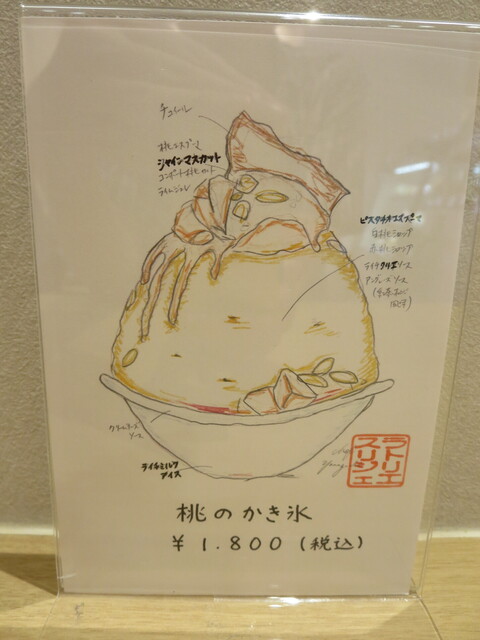 チュイール
桃エスプーマ
シャインマスカット
コンポート桃
ライムジュレ
ピスタチオエスプーマ
白桃シロップ
赤桃シロップ
ソース
アングレーズソース
クリームチーズ
ソース
ライムミルク
アイス
ラトリエ
スリジェ
桃のかき氷
¥1.800(税込)